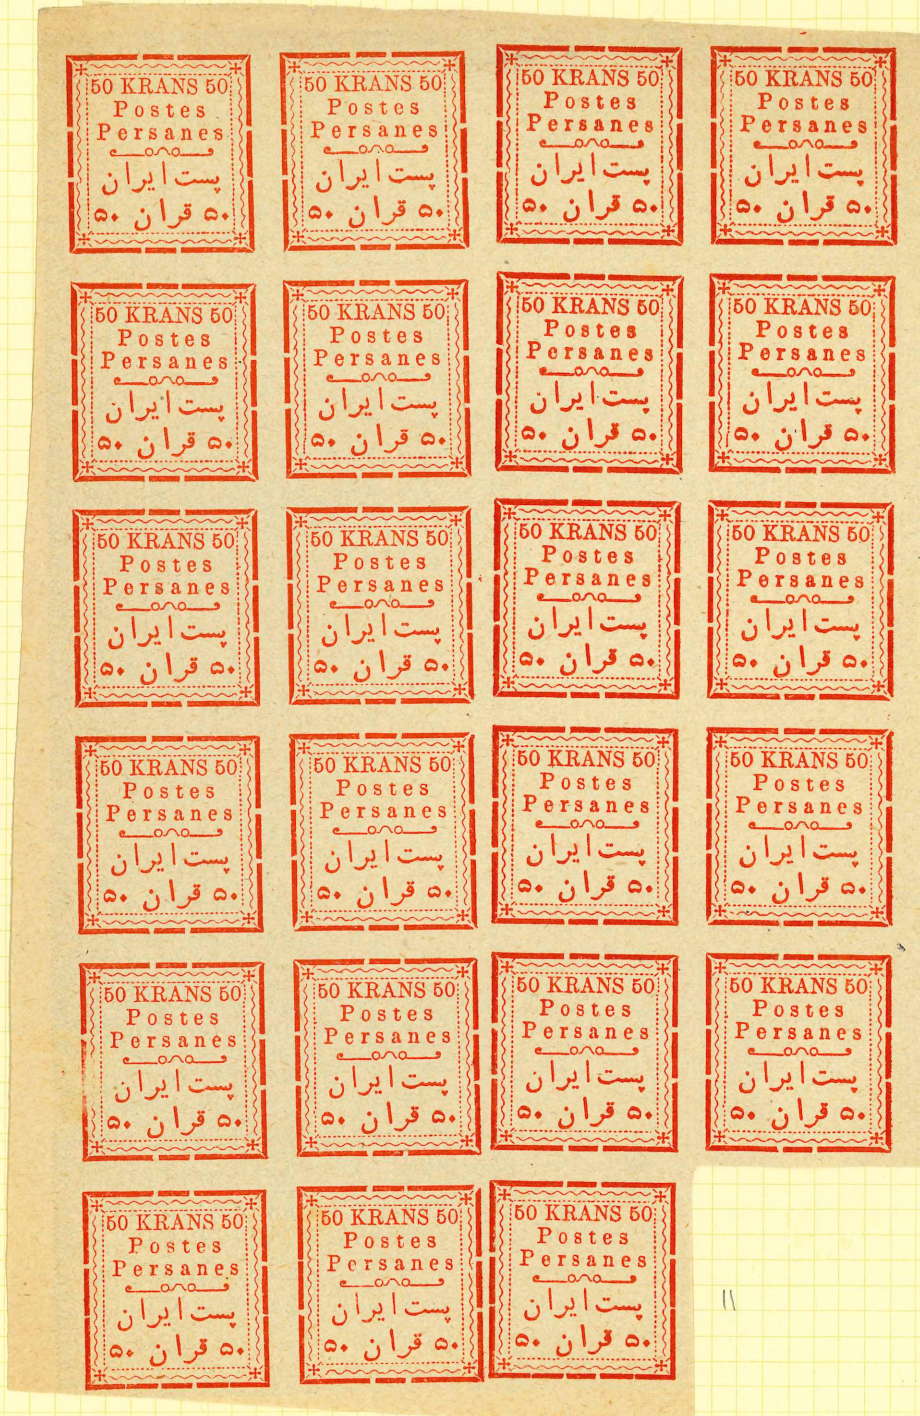 50 KRANS 50
Postes
Persanes
پست ایران
۵۰ قران ۵۰
50 KRANS 50
Postes
Persanes
پست ایران
۵۰ قران ۵۰
50 KRANS 50
Postes
Persanes
پست ایران
۵۰ قران ۵۰
50 KRANS 50
Postes
Persanes
پست ایران
۵۰ قران ۵۰
50 KRANS 50
Postes
Persanes
پست ایران
۵۰ قران ۵۰
50 KRANS 50
Postes
Persanes
پست ایران
۵۰ قران ۵۰
50 KRANS 50
Postes
Persanes
پست ایران
۵۰ قران ۵۰
50 KRANS 50
Postes
Persanes
پست ایران
۵۰ قران ۵۰
50 KRANS 50
Postes
Persanes
پست ایران
۵۰ قران ۵۰
50 KRANS 50
Postes
Persanes
پست ایران
۵۰ قران ۵۰
50 KRANS 50
Postes
Persanes
پست ایران
۵۰ قران ۵۰
50 KRANS 50
Postes
Persanes
پست ایران
۵۰ قران ۵۰
50 KRANS 50
Postes
Persanes
پست ایران
۵۰ قران ۵۰
50 KRANS 50
Postes
Persanes
پست ایران
۵۰ قران ۵۰
50 KRANS 50
Postes
Persanes
پست ایران
۵۰ قران ۵۰
50 KRANS 50
Postes
Persanes
پست ایران
۵۰ قران ۵۰
50 KRANS 50
Postes
Persanes
پست ایران
۵۰ قران ۵۰
50 KRANS 50
Postes
Persanes
پست ایران
۵۰ قران ۵۰
50 KRANS 50
Postes
Persanes
پست ایران
۵۰ قران ۵۰
50 KRANS 50
Postes
Persanes
پست ایران
۵۰ قران ۵۰
50 KRANS 50
Postes
Persanes
پست ایران
۵۰ قران ۵۰
50 KRANS 50
Postes
Persanes
پست ایران
۵۰ قران ۵۰
50 KRANS 50
Postes
Persanes
پست ایران
۵۰ قران ۵۰